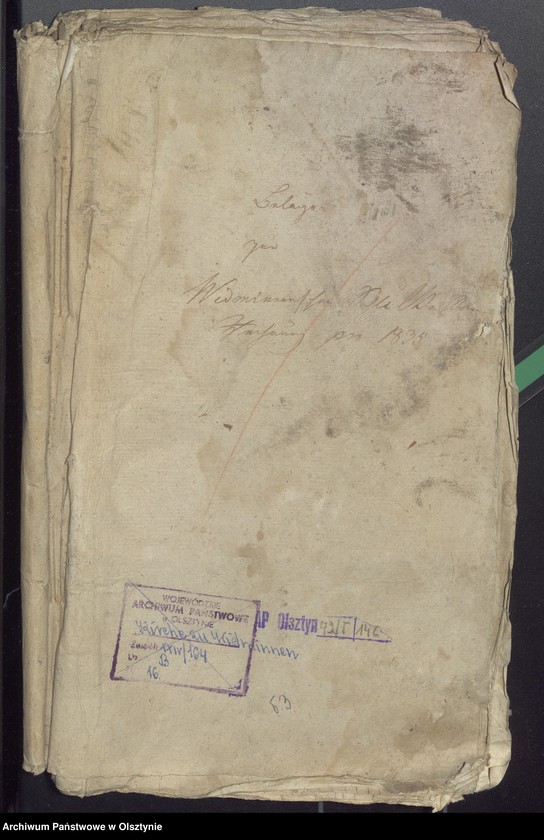 Belage
zur
Widminnenschen
Rechnung pro 1838
WOJEWÓDZKIE
ARCHIWUM PAŃSTWOWE
w OLSZTYNIE
Kirche zu Widminnen
Zespół XXII/164
B
16
AP Olsztyn 42/I/140
63
Archiwum Państwowe w Olsztynie